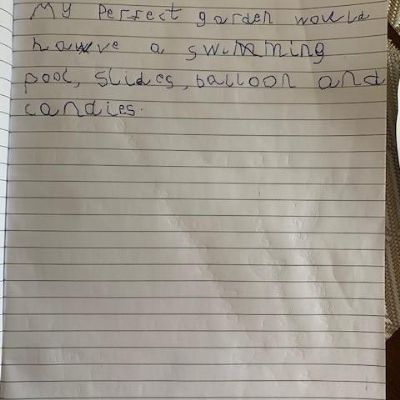 My Perfect garden would
hawve a swimming
pool, slides, balloon and
candies.